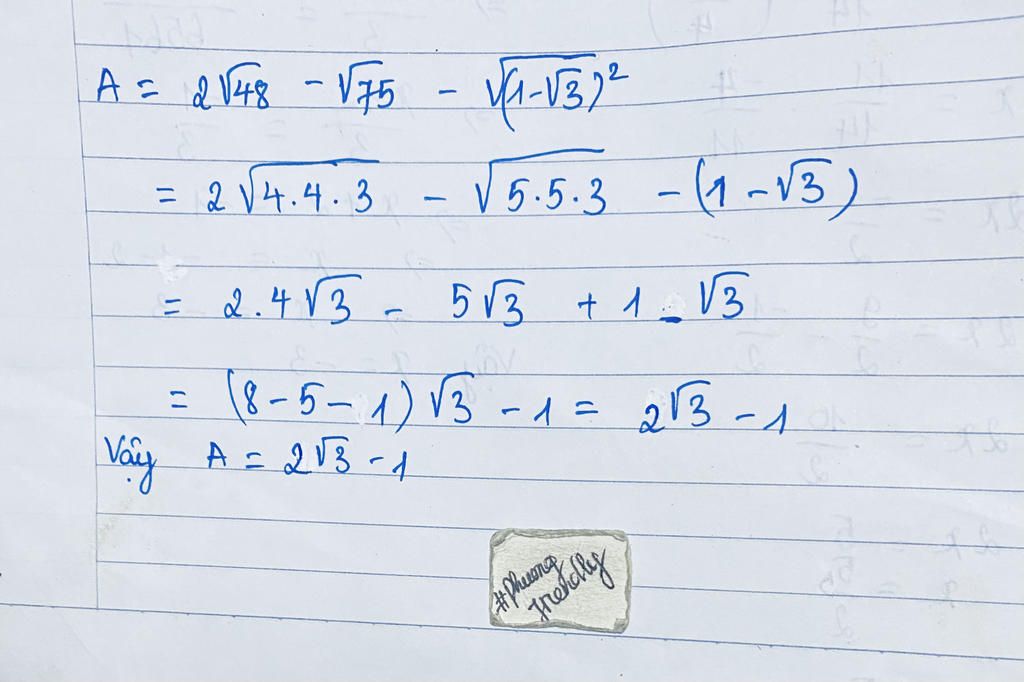 A = 2√48 - √75 - √(1-√3)²
= 2√4.4.3 - √5.5.3 - (1-√3)
= 2.4√3 - 5√3 + 1 - √3
= (8-5-1)√3 - 1 = 2√3 - 1
Vậy A = 2√3 - 1
#Phuong
friendly